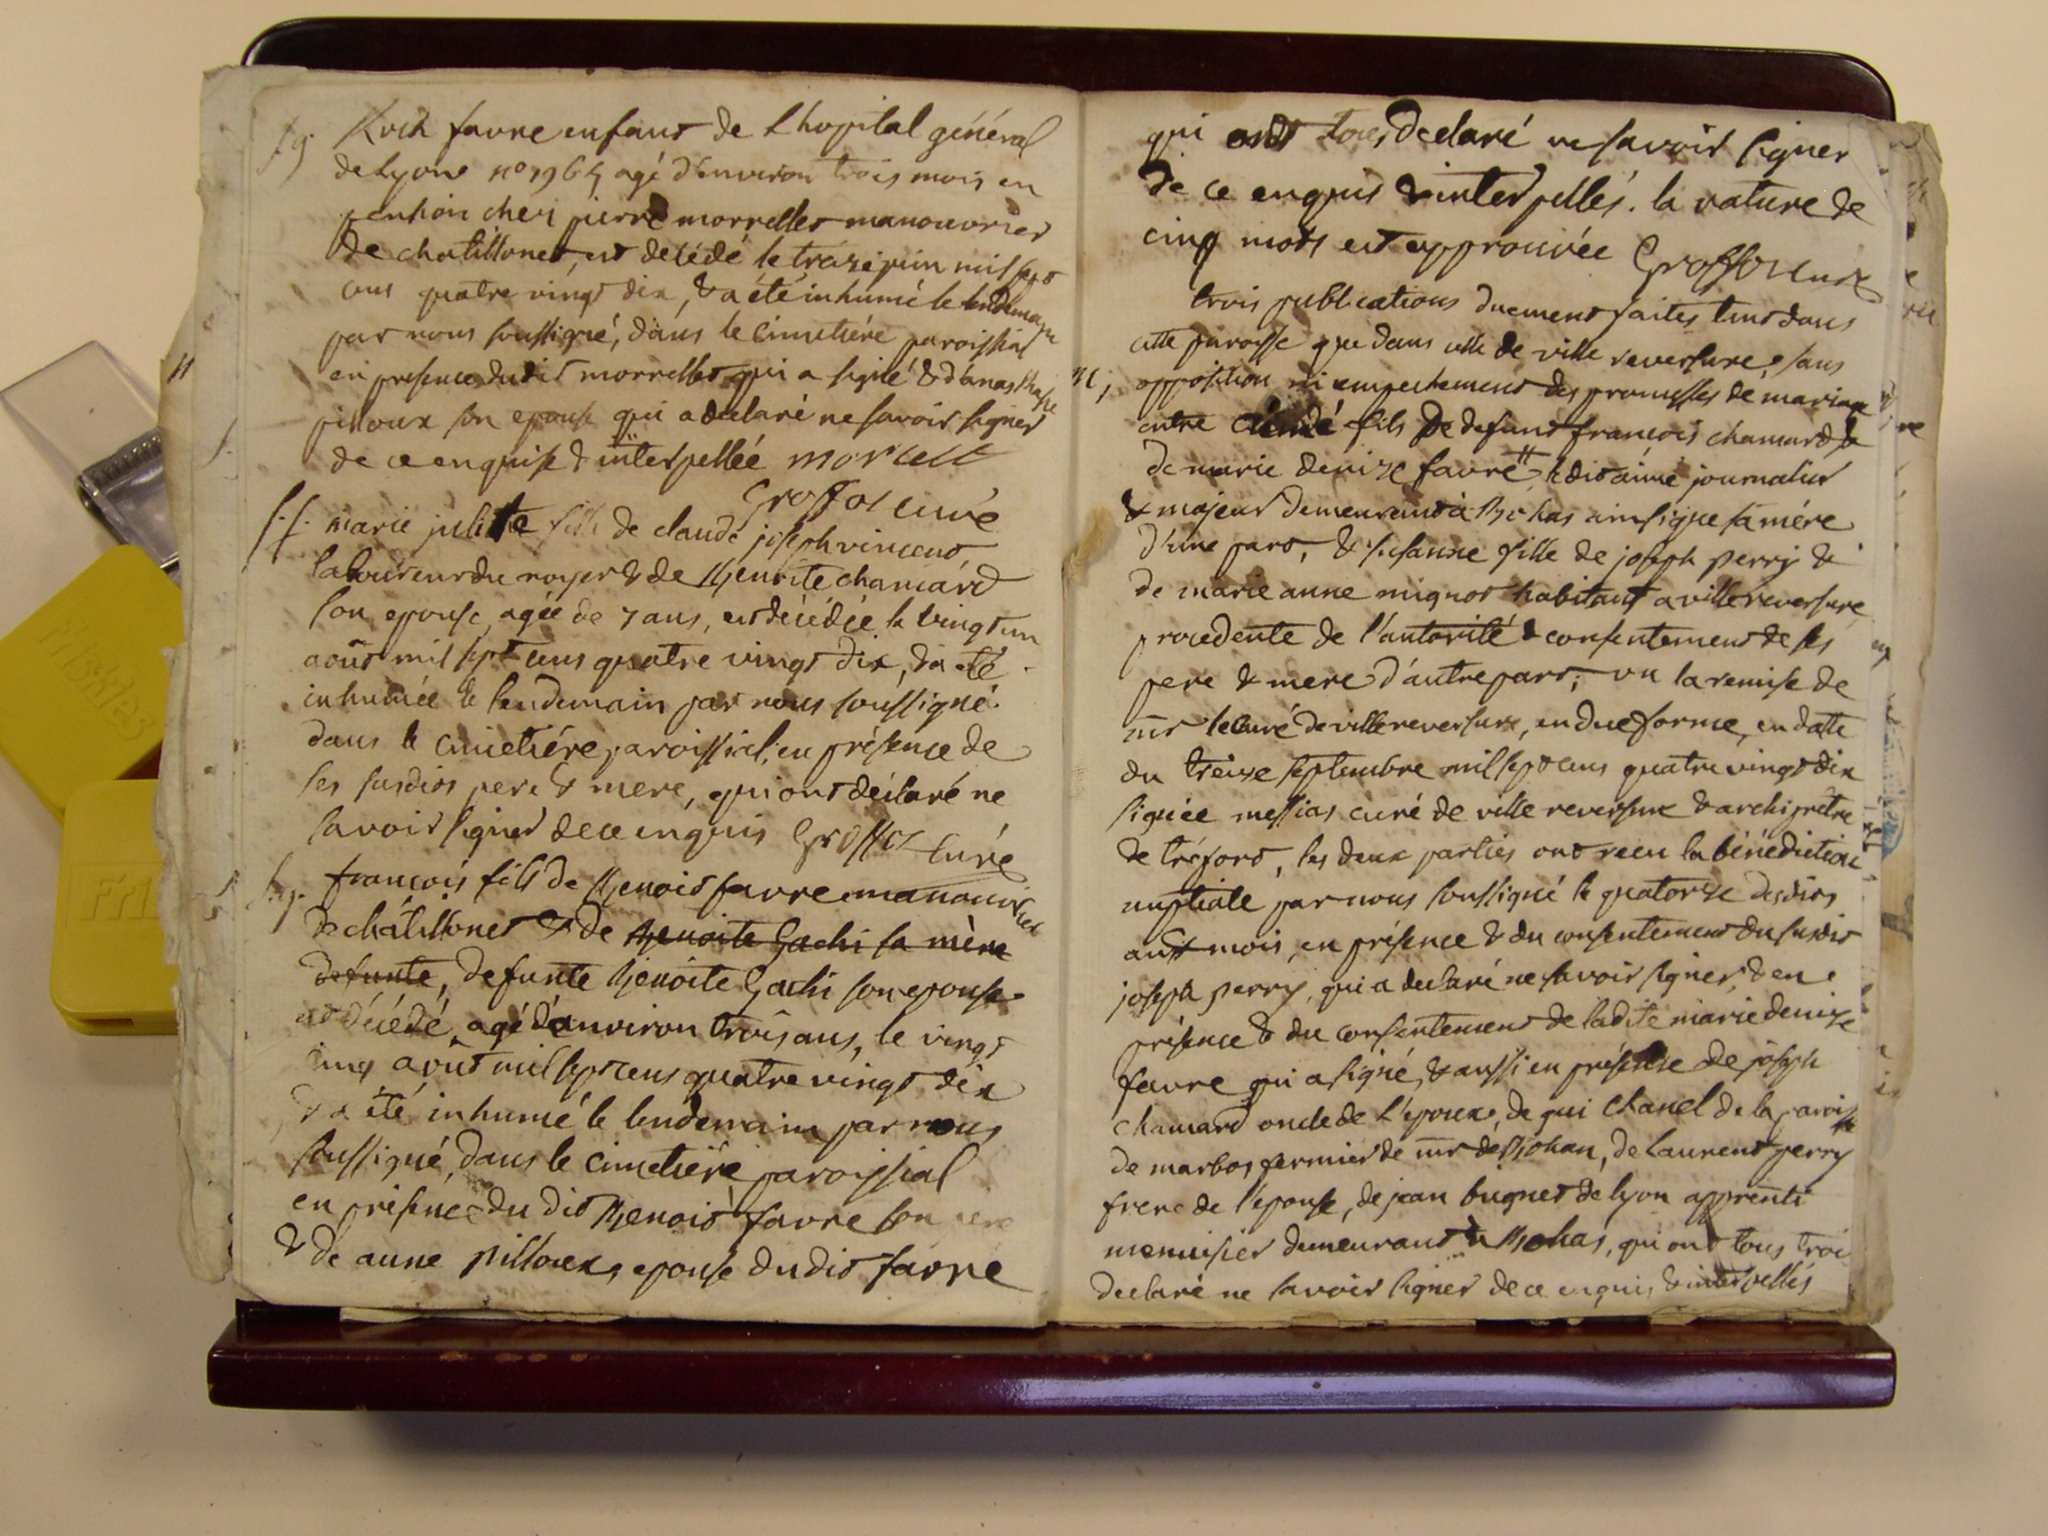 favre enfant de L'hopital général
de Lyon no agé d'environ trois mois en
pension chez pierre morrellet manouvrier
de chatillonet, est décédé le treze juin mil sept
cens quatre vingt dix, & a été inhumé le lendemain
par nous soussigné, dans le cimetiére paroissial
en presence dudit morrellet qui a signé & d'anasthasie
pilloux son epouse qui a déclaré ne savoir signer
de ce enquise & interpellée morellet
Groffoz curé
s.f. marie juliette fille de claude joseph vincent
laboureur du noyer & de Benoite chamard
son epouse, agée de 7 ans, est décédée le vingt un
août mil sept cens quatre vingt dix, & a été
inhumée le lendemain par nous soussigné
dans le cimetiére paroissial, en présence de
ses susdits pere & mere, qui ont déclaré ne
savoir signer de ce enquis Groffoz curé
s.g. françois fils de Benoit favre manouvrier
de châtillonet & de Benoite Gachi sa mère
defunte, defunte Benoite Gachi son epouse
est décédé, agé d'anviron trois ans, le vingt
cinq août mil sept cens quatre vingt dix
& a été inhumé le lendemain par nous
soussigné, dans le cimetiére paroissial
en présence du dit Benoit favre son pere
& de anne pilloux, epouse dudit favre
qui ont tous déclaré ne savoir signer
de ce enquis & interpellés. la rature de
cinq mots est approuvée Groffoz curé
trois publications duement faites tant dans
cette paroisse que dans celle de ville reversure, sans
opposition ni empechement des promesses de mariage
entre fils de defunt françois chamard &
de marie denize favre ledit ainé journalier
& majeur demeurant à Bohas ainsi que sa mére
d'une part, & susanne fille de joseph perry &
de marie anne mignot habitant a ville reversure
procedente de l'autorité & consentement de ses
pere & mere d'autre part; vu la remise de
mr le curé de ville reversure, en due forme, en datte
du treize septembre mil sept cens quatre vingt dix
signée messias curé de ville reversure & archiprêtre
de tréfort, les deux parties ont reçu la bénédiction
nuptiale par nous soussigné le quatorze desdits
an & mois, en présence & du consentement du susdit
joseph perry, qui a declaré ne savoir signer, & en
présence & du consentement de ladite marie denize
favre qui a signé, & aussi en présence de joseph
chamard oncle de L'epoux, de gui chanel de la paroisse
de marbos fermier de mr de Bohan, de Laurent perry
frere de l'épouse, de jean bugnet de lyon apprenti
menuisier demeurant à Bohas, qui ont tous trois
declaré ne savoir signer de ce enquis & interpellés